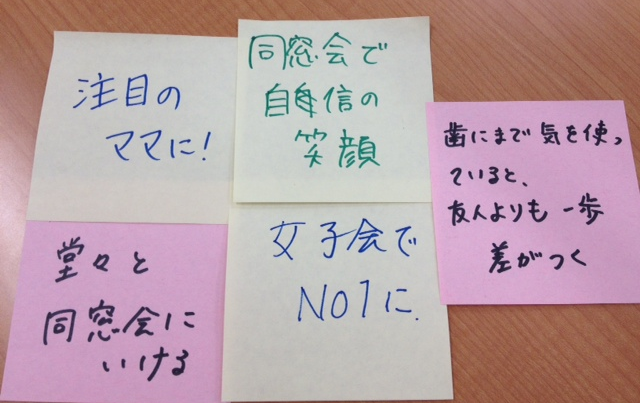 注目の
ママに!
同窓会で
自信の
笑顔
歯にまで気を使っ
ていると、
友人よりも一歩
差がつく
堂々と
同窓会に
いける
女子会で
NO1に.